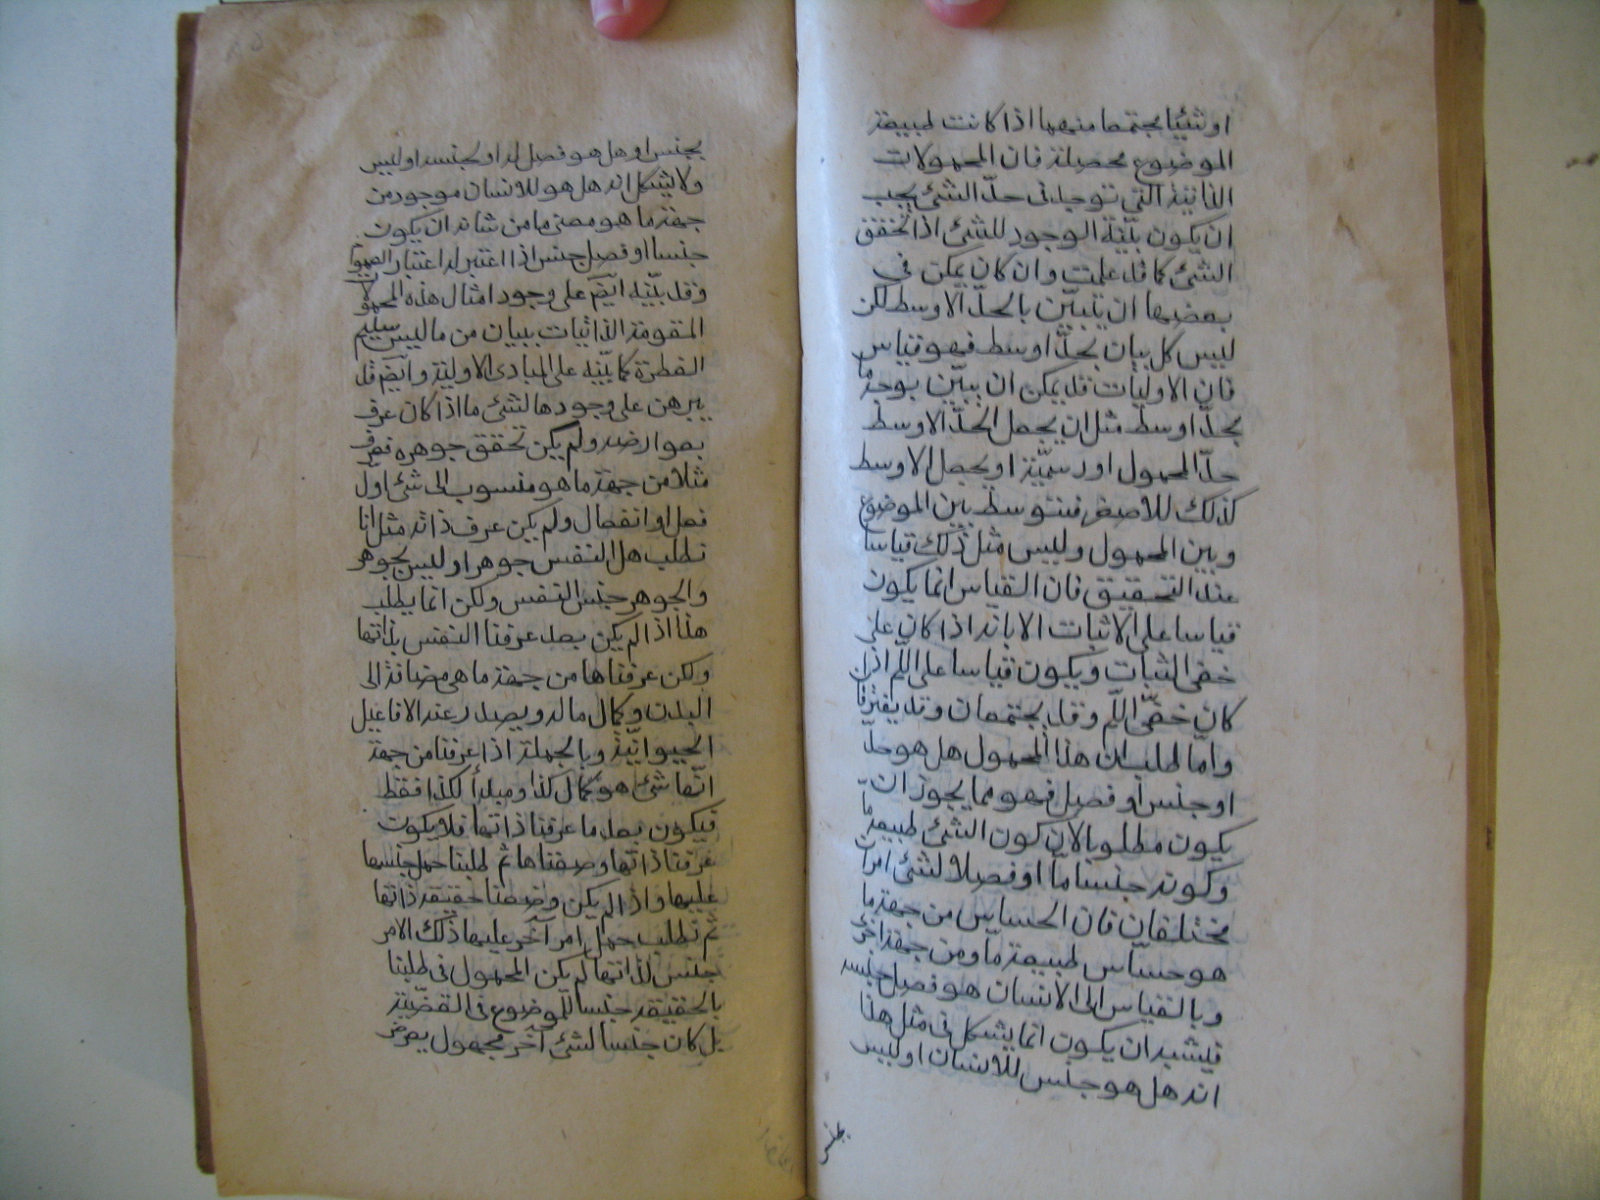 او شيئا يجتمعا منهما اذا كانت طبيعة
الموضوع محصلة فان المحمولات
الذاتية التي توجد في حدّ الشئ يجب
ان يكون بيّنة الوجود للشئ اذا تحقق
الشئ كما قد علمت وان كان يمكن في
بعضها ان يتبيّن بالحدّ الاوسط لكن
ليس كل بيان بحدّ اوسط فهو قياس
فان الاوليات قد يمكن ان يبيّن بوجه ما
بحدّ اوسط مثل ان يجعل الحدّ الاوسط
حدّ المحمول او رسمه او يجعل الاوسط
كذلك للاصغر فتتوسط بين الموضوع
وبين المحمول وليس مثل ذلك قياسا
عند التحقيق فان القياس انما يكون
قياسا على الاثبات الا بانه اذا كان على
خفى الثبات ويكون قياسا على اللّم اذا
كان خفىّ اللّم وقد يجتمعان وقد يفترقان
واما طلب ان هذا المحمول هل هو حدّ
او جنس او فصل فهو مما يجوز ان
يكون مطلوبا لان كون الشئ طبيعة ما
وكونه جنسا ما او فصلا لشئ امران
مختلفان فان الحساس من جهة ما
هو حساس طبيعة ما ومن جهة اخرى
وبالقياس الى الانسان هو فصل جنسه
فليشبه ان يكون انما يشكل في مثل هذا
انه هل هو جنس للانسان او ليس
بجنس او هل هو فصل له او لجنسه او ليس
ولا يشكل انه هل هو للانسان موجود من
جهة ما هو معنى ما من شانه ان يكون
جنسا او فصل جنس اذا اعتبر له اعتبار العموم
وقد بيّنه ايضً على وجود امثال هذه المحمولات
المقومة الذاتيات ببيان من ما ليس سليم
الفطرة كما بيّنه على المبادى الاولية وايضً قد
يبرهن على وجودها لشئ ما اذا كان عرف
بعوارضه ولم يكن تحقق جوهره فعرف
مثلا من جهة ما هو منسوب الى شئ اوّل
فعل او انفعال ولم يكن عرف ذاته مثل انا
نطلب هل النفس جوهر او ليس بجوهر
والجوهر جنس النفس ولكن انما يطلب
هذا اذا لم يكن بعد عرفنا النفس بذاتها
ولكن عرفناها من جهة ما هى مضافة الى
البدن وكمال ما له ويصدر عنه الافاعيل
الحيوانيّة وبالجملة اذا عرفنا من جهة
انّها شئ هو كمال كذا ومبدأ لكذا فقط
فيكون بعد ما عرفنا ذاتها فلا يكون
عرفنا ذاتها وضعناها ثم طلبنا حمل جنسها
عليها واذا لم يكن وضعنا حقيقة ذاتها
ثم نطلب حمل امر آخر عليها ذلك الامر
جنس لذاتها لم يكن المحمول في طلبنا
بالحقيقة جنسا للموضوع في القضيّة
بل كان جنسا لشئ آخر مجهول يعرض